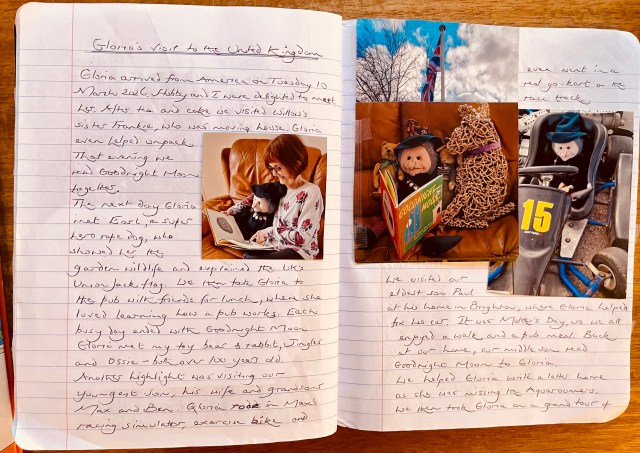 Gloria's visit to the United Kingdom
Gloria arrived from America on Tuesday 10
March 2026. Hubby and I were delighted to meet
her. After tea and cake we visited Willow's
sister Frankie, who was moving house. Gloria
even helped unpack
That evening we
read Goodnight Moon
together.
The next day Gloria
met Earl, a super
hero rope dog, who
showed her the
garden wildlife and explained the UK's
Union Jack flag. We then took Gloria to
the pub with friends for lunch, where she
loved learning how a pub works. Each
busy day ended with Goodnight Moon
Gloria met my toy bear & rabbit, Jingles
and Ossie - both over 100 years old.
Another highlight was visiting our
youngest son, his wife and grandsons
Max and Ben. Gloria rode in Max's
racing simulator, exercise bike and
even went in a
real go-kart on the
race track.
GOODNIGHT
MOON
15
We visited our
eldest son Paul
at his home in Brighton, where Gloria helped
fix his car. It was Mother's Day, so we all
enjoyed a walk and a pub meal. Back
at our home, our middle son read
Goodnight Moon to Gloria.
We helped Gloria write a letter home
as she was missing
We then took Gloria on a grand tour of